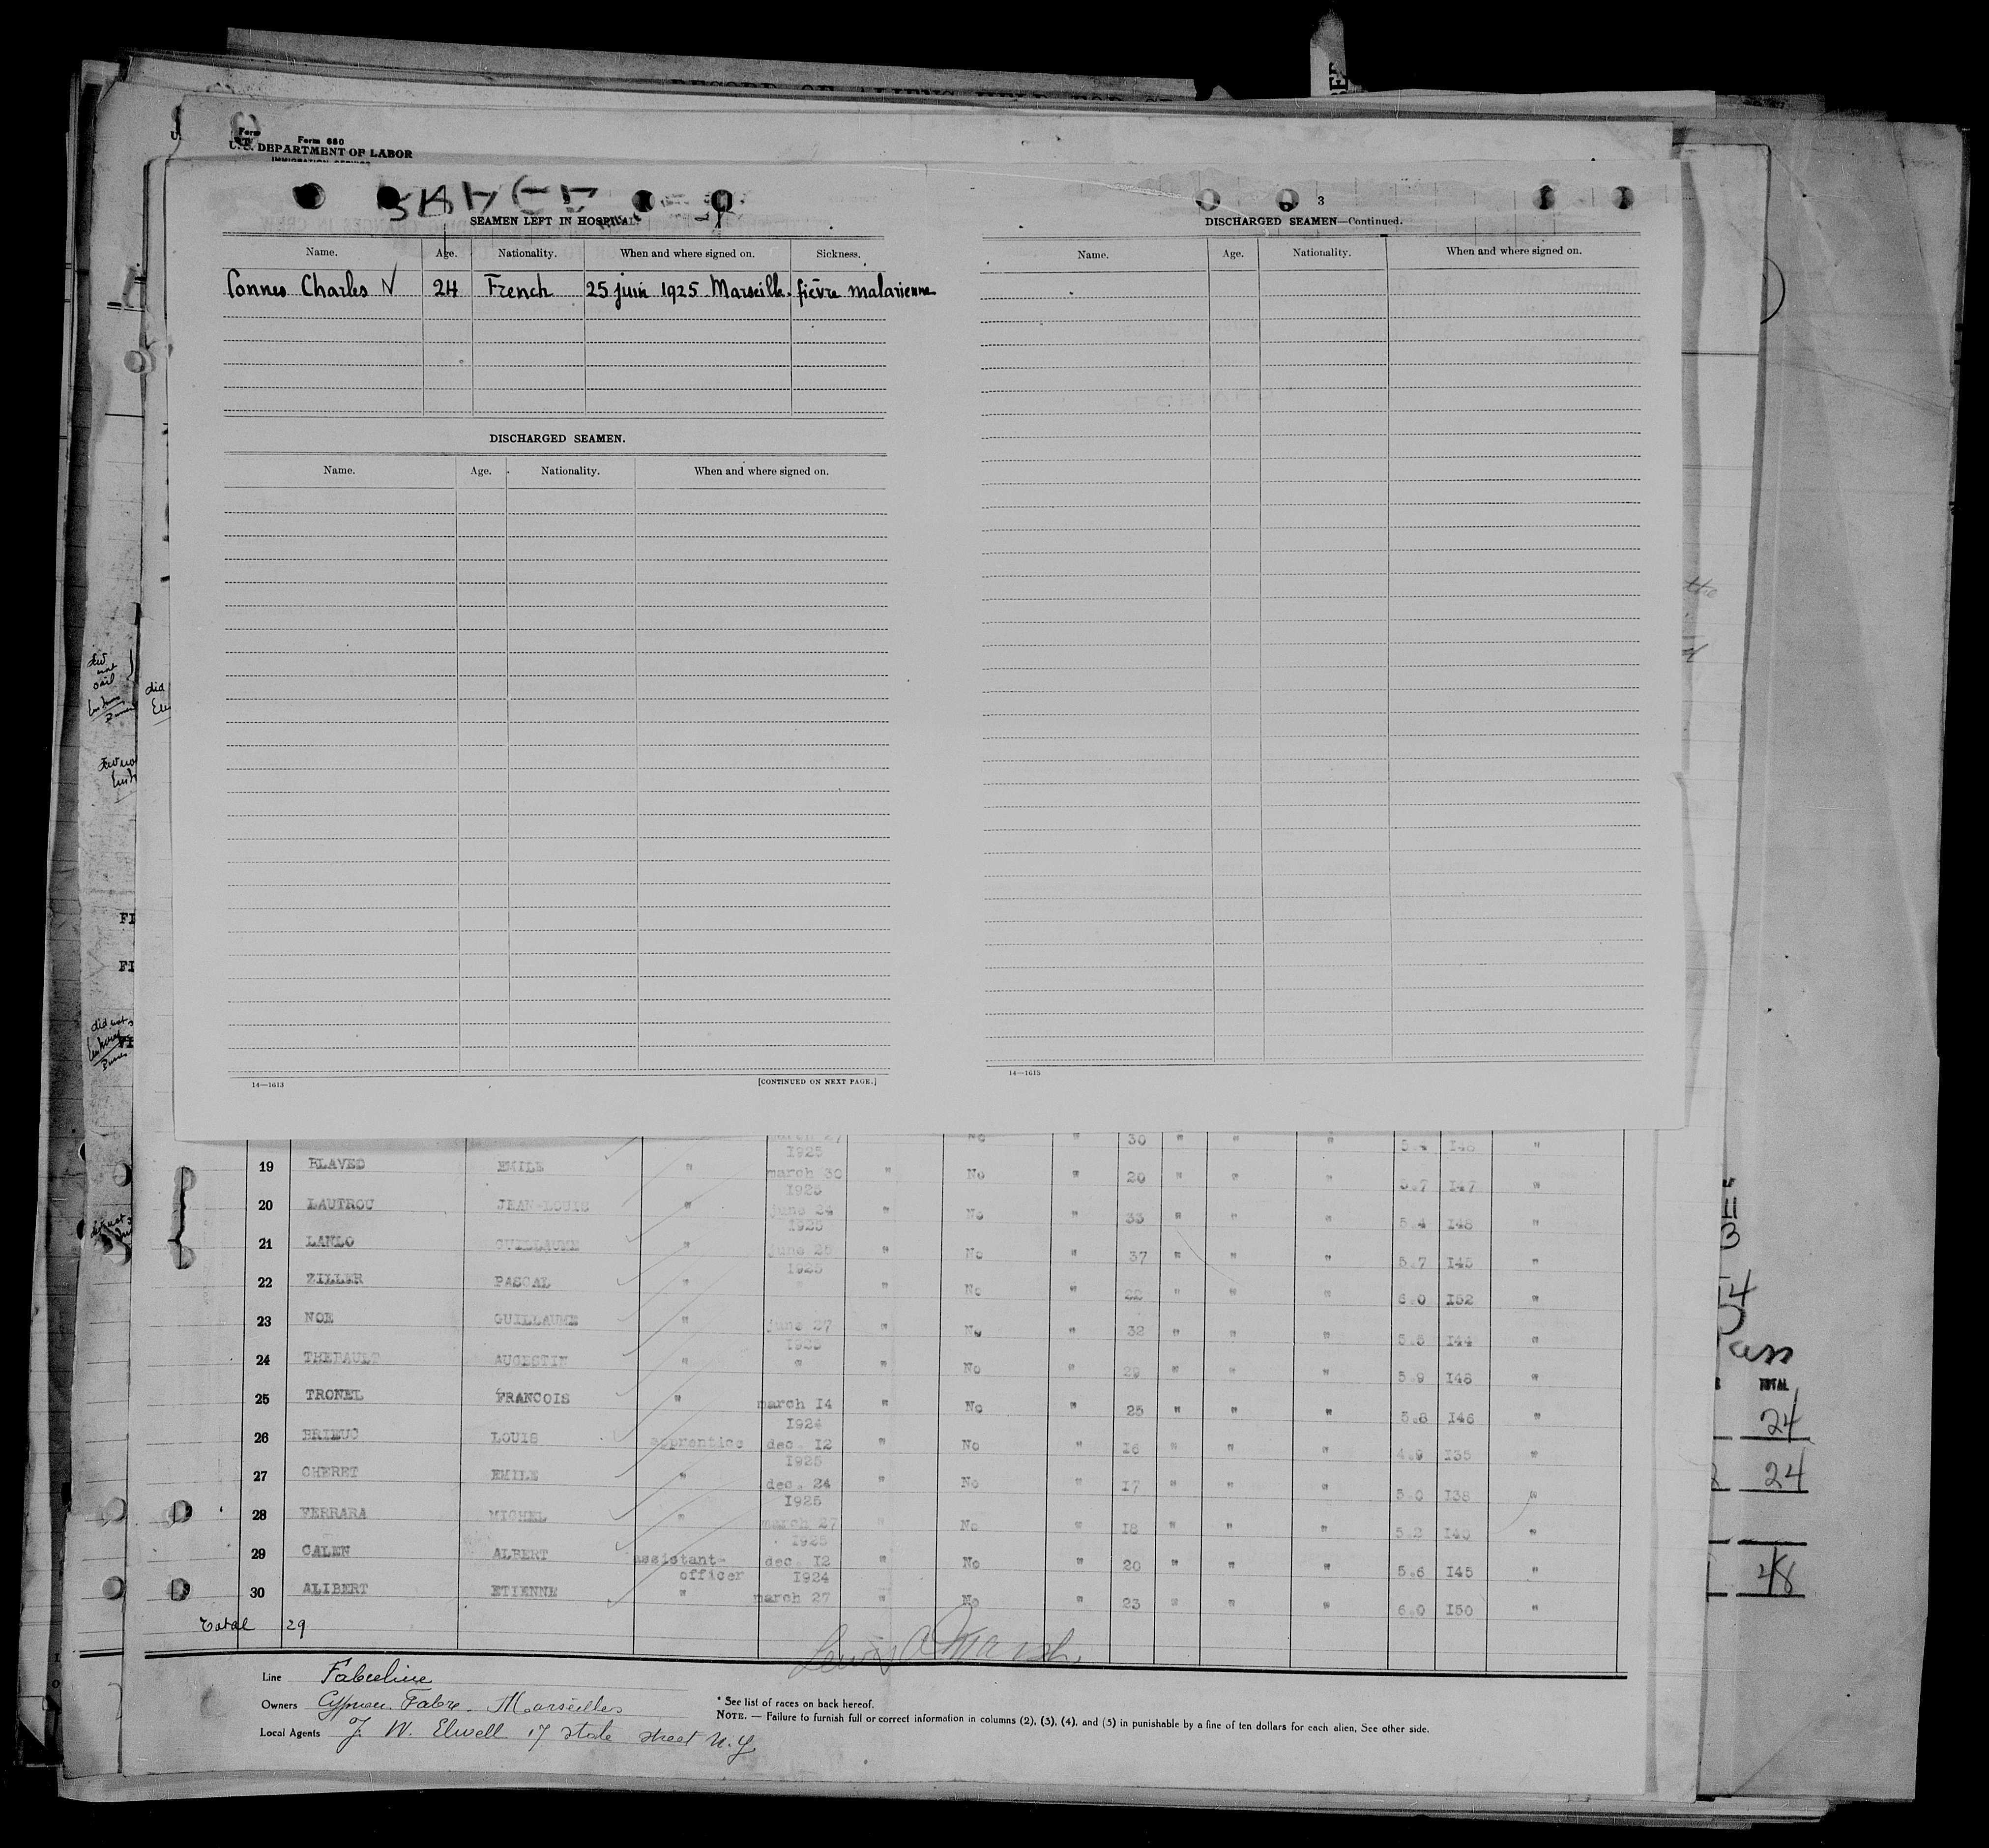 Form 680
U. S. DEPARTMENT OF LABOR
IMMIGRATION SERVICE
SEAMEN LEFT IN HOSPITAL.
Name. Age. Nationality. When and where signed on. Sickness.
Connes Charles 24 French 25 juin 1925 Marseille. fièvre malarienne
DISCHARGED SEAMEN.
Name. Age. Nationality. When and where signed on.
14—1613 [CONTINUED ON NEXT PAGE.]
3
DISCHARGED SEAMEN—Continued.
Name. Age. Nationality. When and where signed on.
14—1613
march 27 No " 30 " " " 5.4 148 "
1925
19 BLAVED EMILE " march 30 " No " 20 " " " 5.7 147 "
1925
20 LAUTROU JEAN-LOUIS " june 24 " No " 33 " " " 5.4 148 "
1925
21 LANLO GUILLAUME " june 25 " No " 37 " " " 5.7 145 "
1925
22 ZILLER PASCAL " " " No " 22 " " " 6.0 152 "
23 NOE GUILLAUME " june 27 " No " 32 " " " 5.5 144 "
1925
24 THEBAULT AUGUSTIN " " " No " 29 " " " 5.9 148 "
25 TRONEL FRANCOIS " march 14 " No " 25 " " " 5.8 146 "
1924
26 BRIEUC LOUIS apprentice dec. 12 " No " 16 " " " 4.9 135 "
1925
27 CHERET EMILE " dec. 24 " No " 17 " " " 5.0 138 "
1925
28 FERRARA MICHEL " march 27 No " 18 " " " 5.2 140 "
1925
29 CALEN ALBERT assistant- dec. 12 " No " 20 " " " 5.6 145 "
officer 1924
30 ALIBERT ETIENNE " march 27 " No " 23 " " " 6.0 150 "
Total 29
Line Fabreline
Owners Cyprien Fabre. Marseilles
Local Agents J. W. Elwell 17 State Street N.Y
* See list of races on back hereof.
NOTE. — Failure to furnish full or correct information in columns (2), (3), (4), and (5) in punishable by a fine of ten dollars for each alien, See other side.
TOTAL
24
24
48